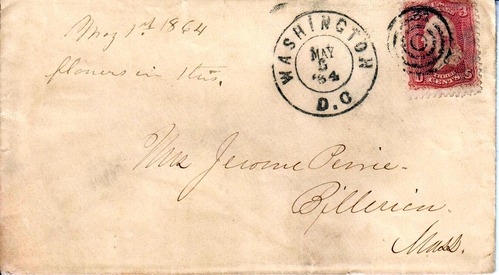 May 1st 1864
flowers in this.
WASHINGTON
MAY
5
'64
D.C
3 3
THREE CENTS
Mrs Jerome
Billerica.
Mass.